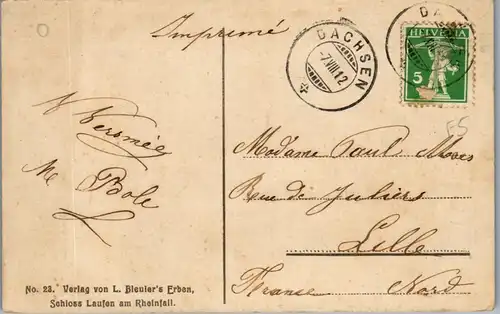 Imprimé
DACHSEN
-7.VIII.12
HELVETIA
5
DA
F5
Mme Bole
Madame Paul Moers
Rue de Juliers
Lille
France Nord
No. 23. Verlag von L. Bleuler's Erben,
Schloss Laufen am Rheinfall.